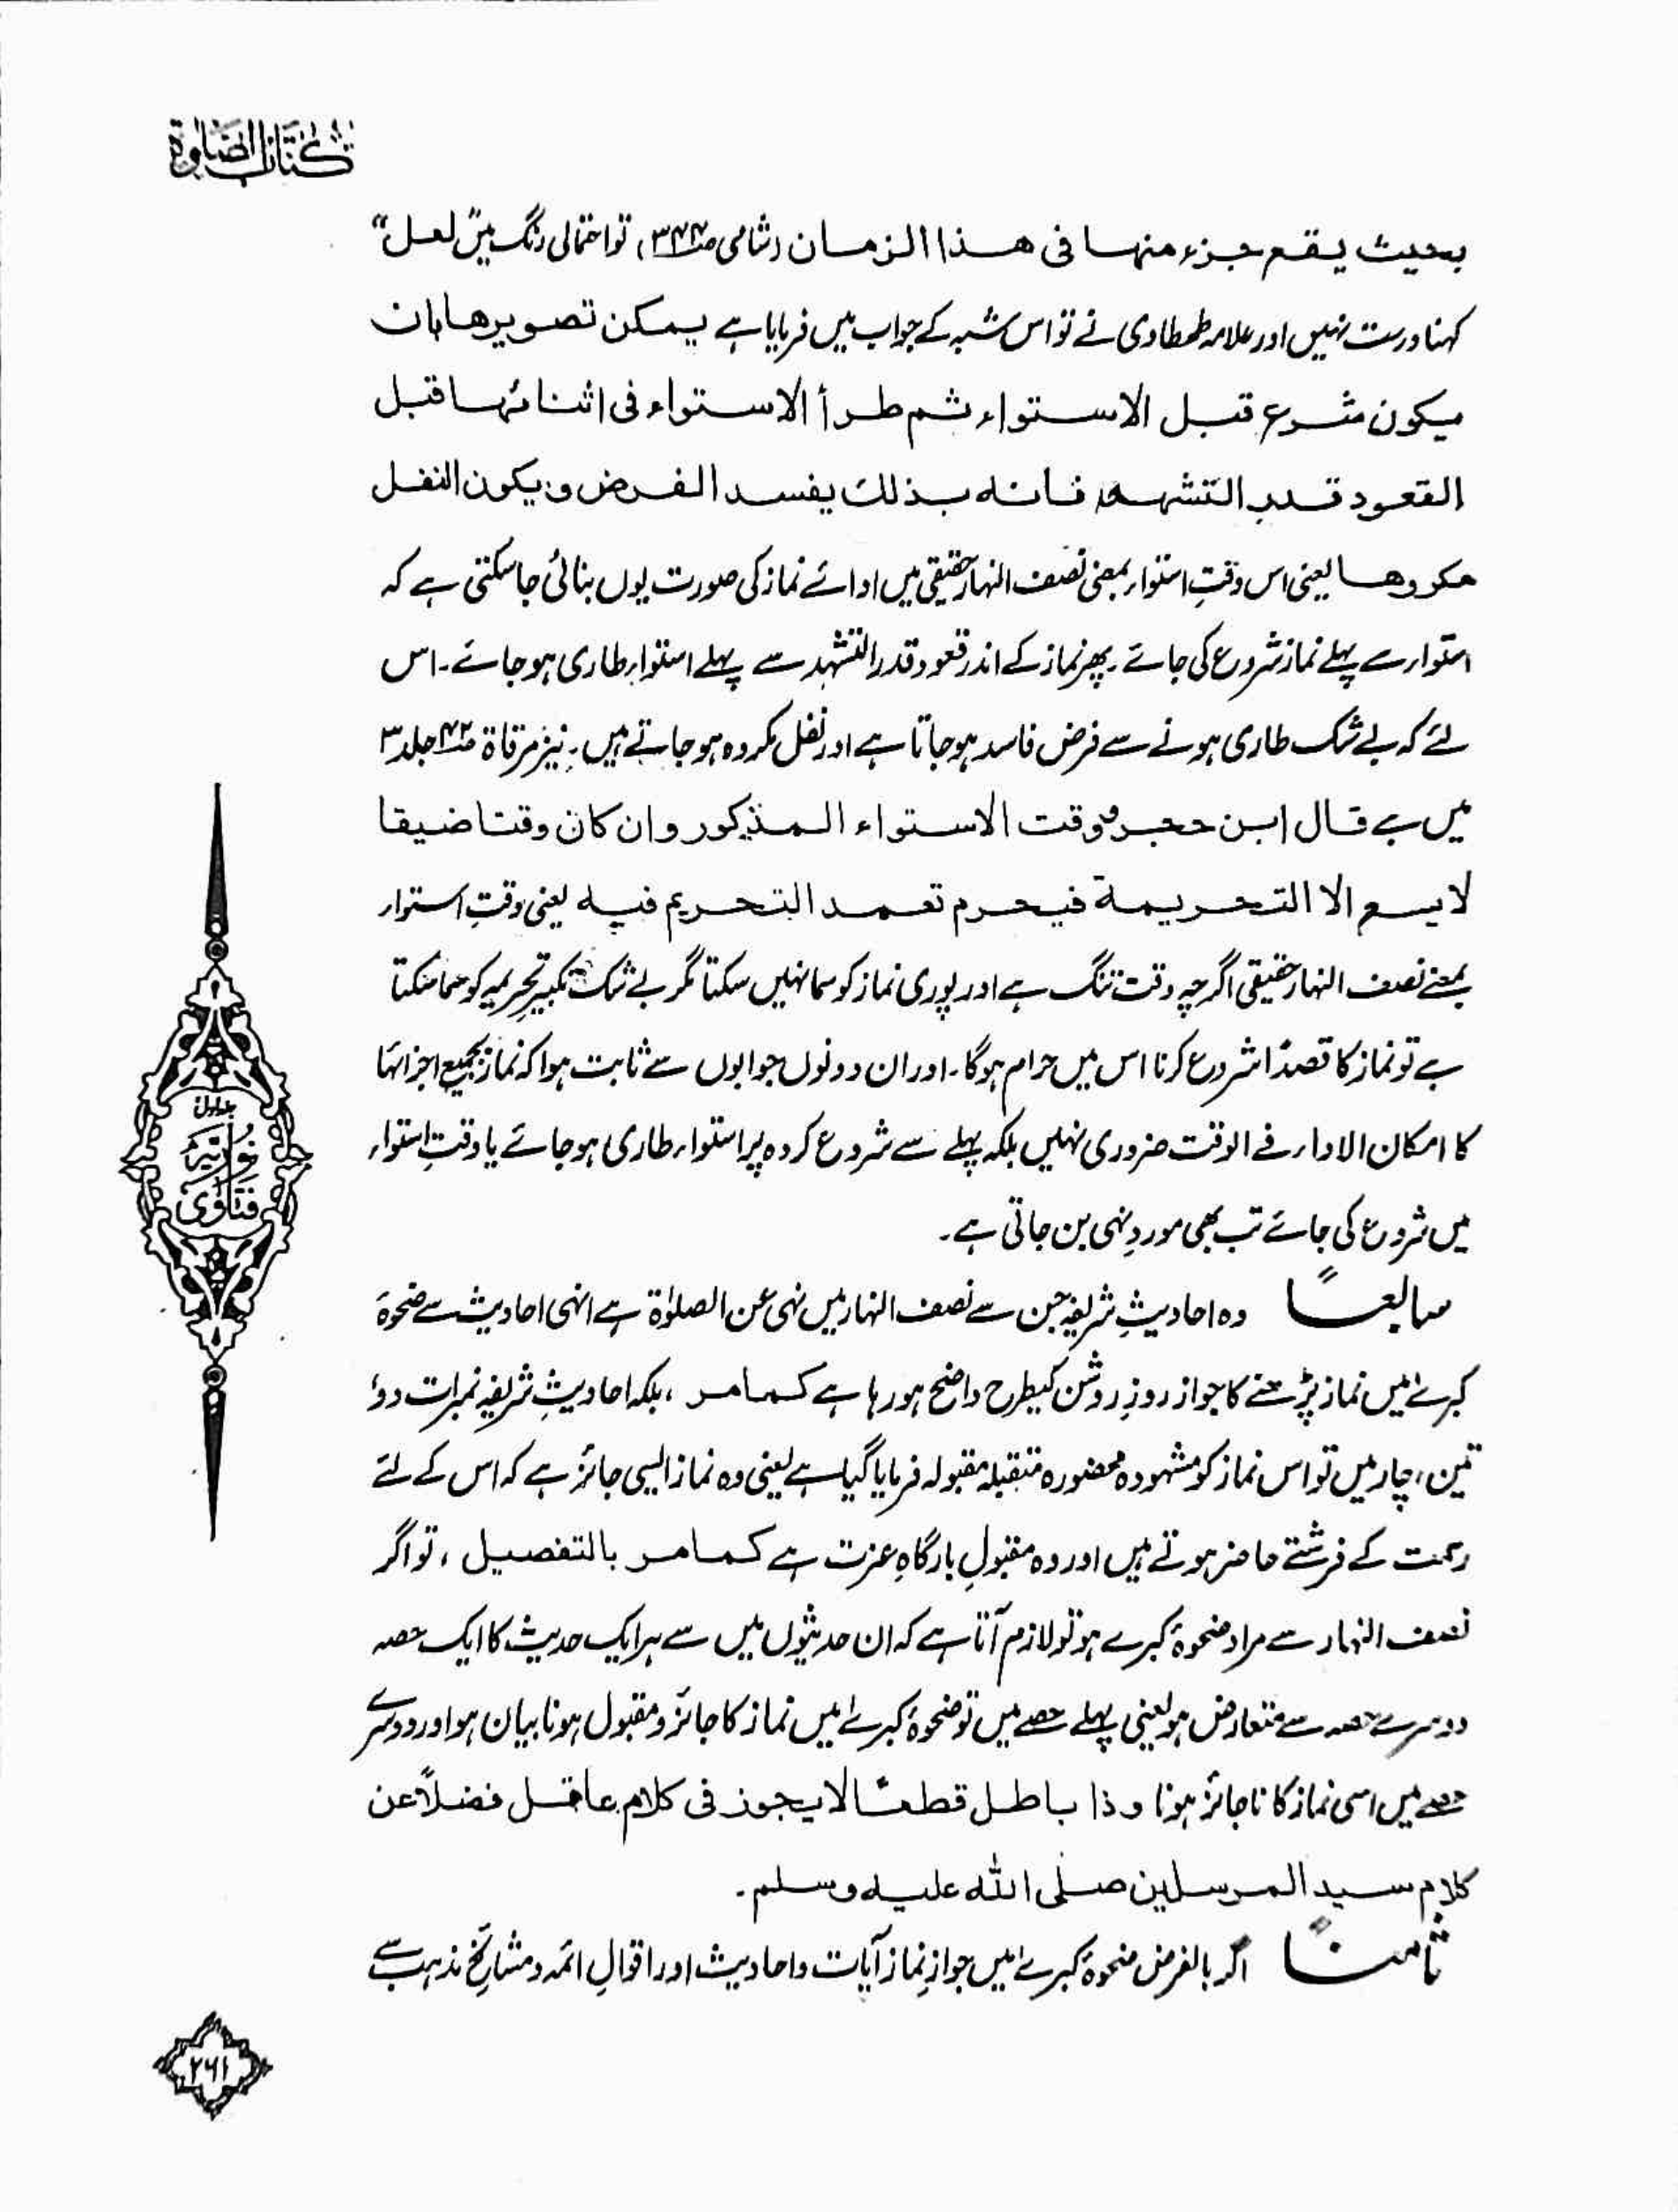 كتاب الصلوة
بحيث يقع جزء منها فى هذا الزمان (شامی ص۳۴۴)، تو احتمالی رنگ میں "لعل"
کہنا درست نہیں اور علامہ طحطاوی نے تو اس شبہ کے جواب میں فرمایا ہے يمكن تصويرها بان
يكون شرع قبل الاستواء ثم طرأ الاستواء فى اثنائها قبل
القعود قدر التشهد فانه بذلك يفسد الفرض ويكون النفل
مكروها یعنی اس وقتِ استواء بمعنی نصف النہار حقیقی میں ادائے نماز کی صورت یوں بنائی جا سکتی ہے کہ
استواء سے پہلے نماز شروع کی جائے۔ پھر نماز کے اندر قعود قدر التشہد سے پہلے استواء طاری ہو جائے۔ اس
لئے کہ بے شک طاری ہونے سے فرض فاسد ہو جاتا ہے اور نفل مکروہ ہو جاتے ہیں۔ نیز مرقاۃ ص۴۲ جلد ۳
میں ہے قال ابن حجر ووقت الاستواء المذكور وان كان وقتا ضيقا
لا يسع الا التحريمة فيحرم تعمد التحريم فيه یعنی وقتِ استواء
بمعنے نصف النہار حقیقی اگرچہ وقت تنگ ہے اور پوری نماز کو سما نہیں سکتا مگر بے شک تکبیرِ تحریمہ کو سما سکتا
ہے تو نماز کا قصدًا شروع کرنا اس میں حرام ہوگا۔ اور ان دونوں جوابوں سے ثابت ہوا کہ نماز بجمیع اجزائہا
کا امکان الاداء فے الوقت ضروری نہیں بلکہ پہلے سے شروع کردہ پر استواء طاری ہو جائے یا وقتِ استواء
میں شروع کی جائے تب بھی موردِ نہی بن جاتی ہے۔
سابعًا وہ احادیثِ شریفہ جن سے نصف النہار میں نہی عن الصلوٰۃ ہے انہی احادیث سے ضحوۂ
کبرےٰ میں نماز پڑھنے کا جواز روزِ روشن کیطرح واضح ہو رہا ہے كما مر، بلکہ احادیثِ شریفہ نمبرات دو،
تین، چار میں تو اس نماز کو مشہودہ محضورہ متقبلہ مقبولہ فرمایا گیا ہے یعنی وہ نماز ایسی جائز ہے کہ اس کے لئے
رحمت کے فرشتے حاضر ہوتے ہیں اور وہ مقبولِ بارگاہِ عزت ہے كما مر بالتفصيل، تو اگر
نصف النہار سے مراد ضحوۂ کبرے ہو تو لازم آتا ہے کہ ان حدیثوں میں سے ہر ایک حدیث کا ایک حصہ
دوسرے حصہ سے متعارض ہو یعنی پہلے حصے میں تو ضحوۂ کبرےٰ میں نماز کا جائز و مقبول ہونا بیان ہو اور دوسرے
حصے میں اسی نماز کا ناجائز ہونا وذا باطل قطعًا لا يجوز فى كلام عاقل فضلًا عن
كلام سيد المرسلين صلى الله عليه وسلم۔
ثامنًا اگر بالفرض ضحوۂ کبرےٰ میں جوازِ نماز آیات و احادیث اور اقوالِ ائمہ و مشائخِ مذہب سے
جلد اول
نوریہ
فتاوٰی
۲۶۱